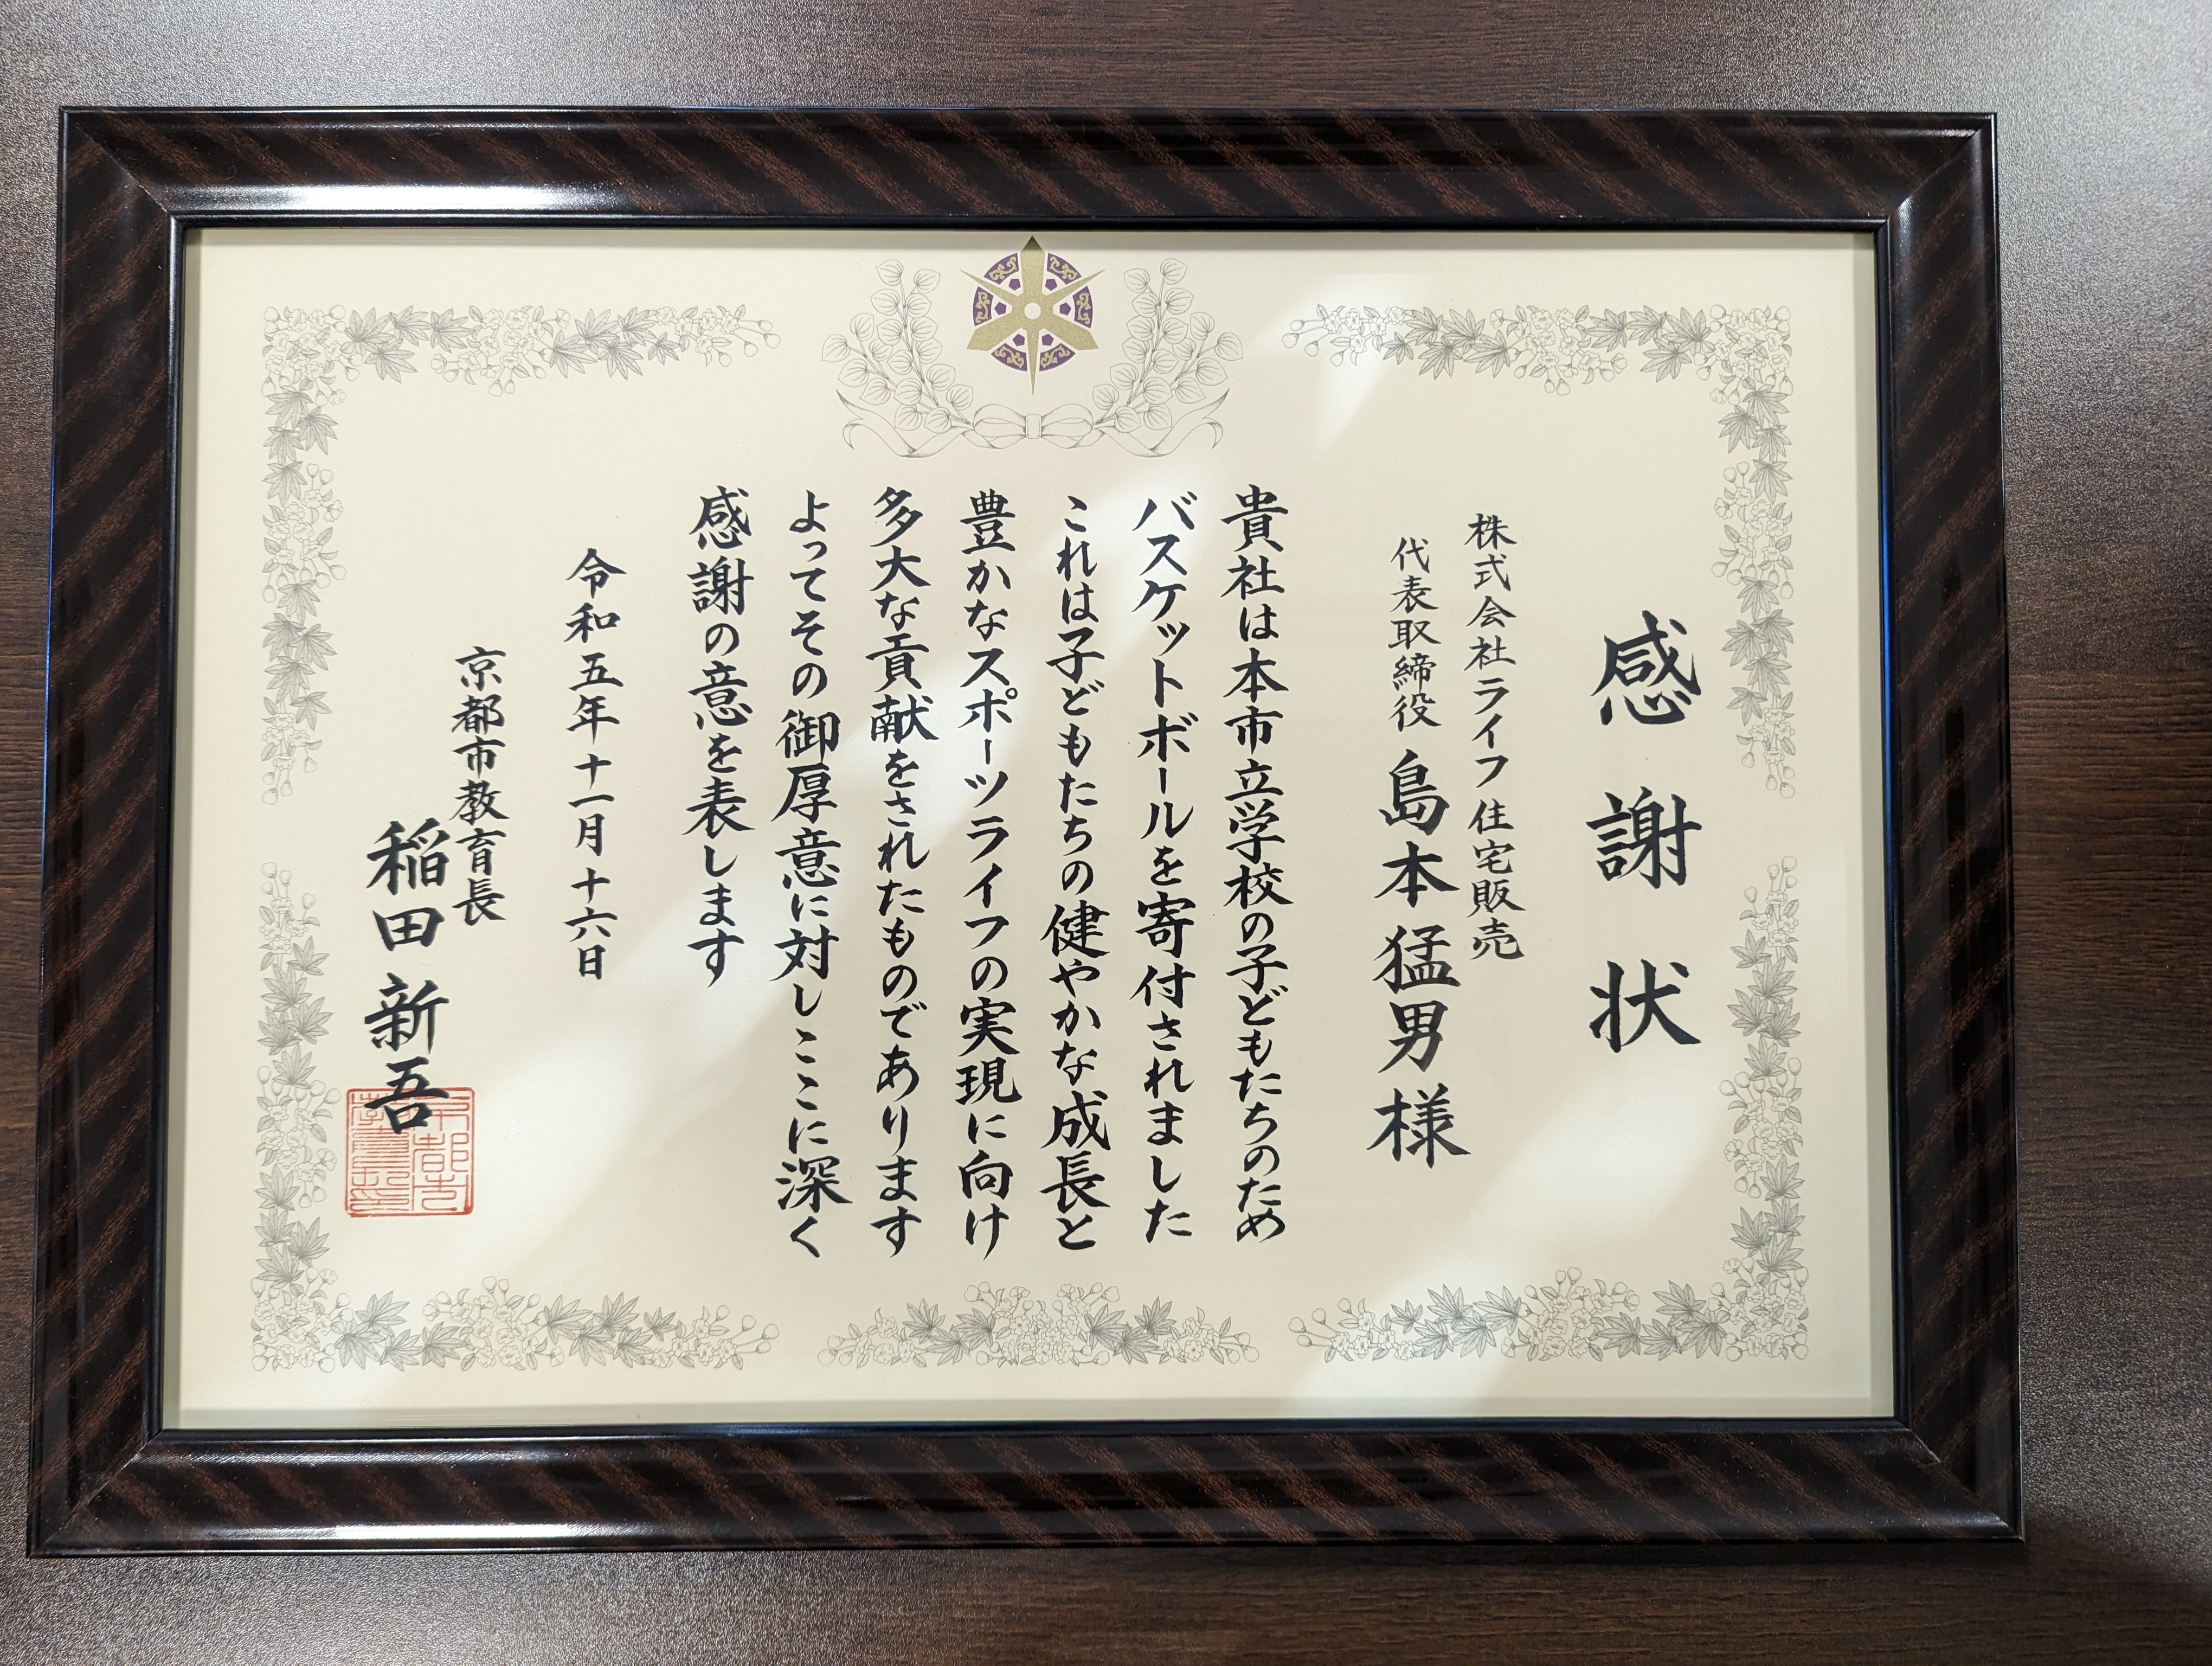 感謝状
株式会社ライフ住宅販売
代表取締役 島本猛男様
貴社は本市立学校の子どもたちのため
バスケットボールを寄付されました
これは子どもたちの健やかな成長と
豊かなスポーツライフの実現に向け
多大な貢献をされたものであります
よってその御厚意に対しここに深く
感謝の意を表します
令和五年十一月十六日
京都市教育長
稲田新吾